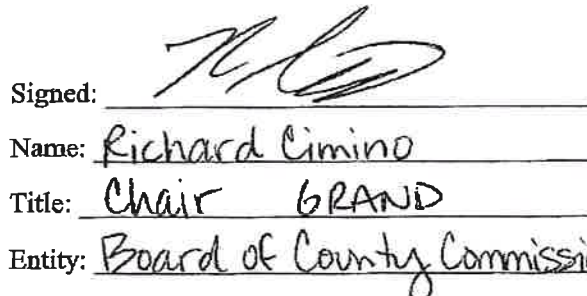 Signed:
Name: Richard Cimino
Title: Chair GRAND
Entity: Board of County Commissi